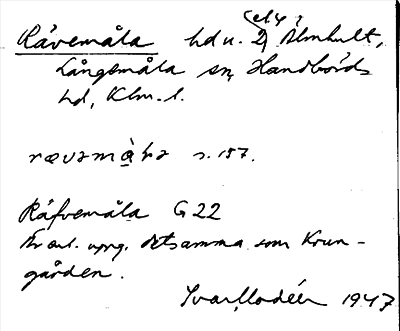 (el 4?)
Rävemåla hd u. 2) Älmhult,
Långemåla sn, Handbörds
hd, Klm. l.
rævəmå̀la s. 157.
Räfvemåla G 22
Är enl. uppg. detsamma som Krun-
gården.
Ivar Modéer 1947